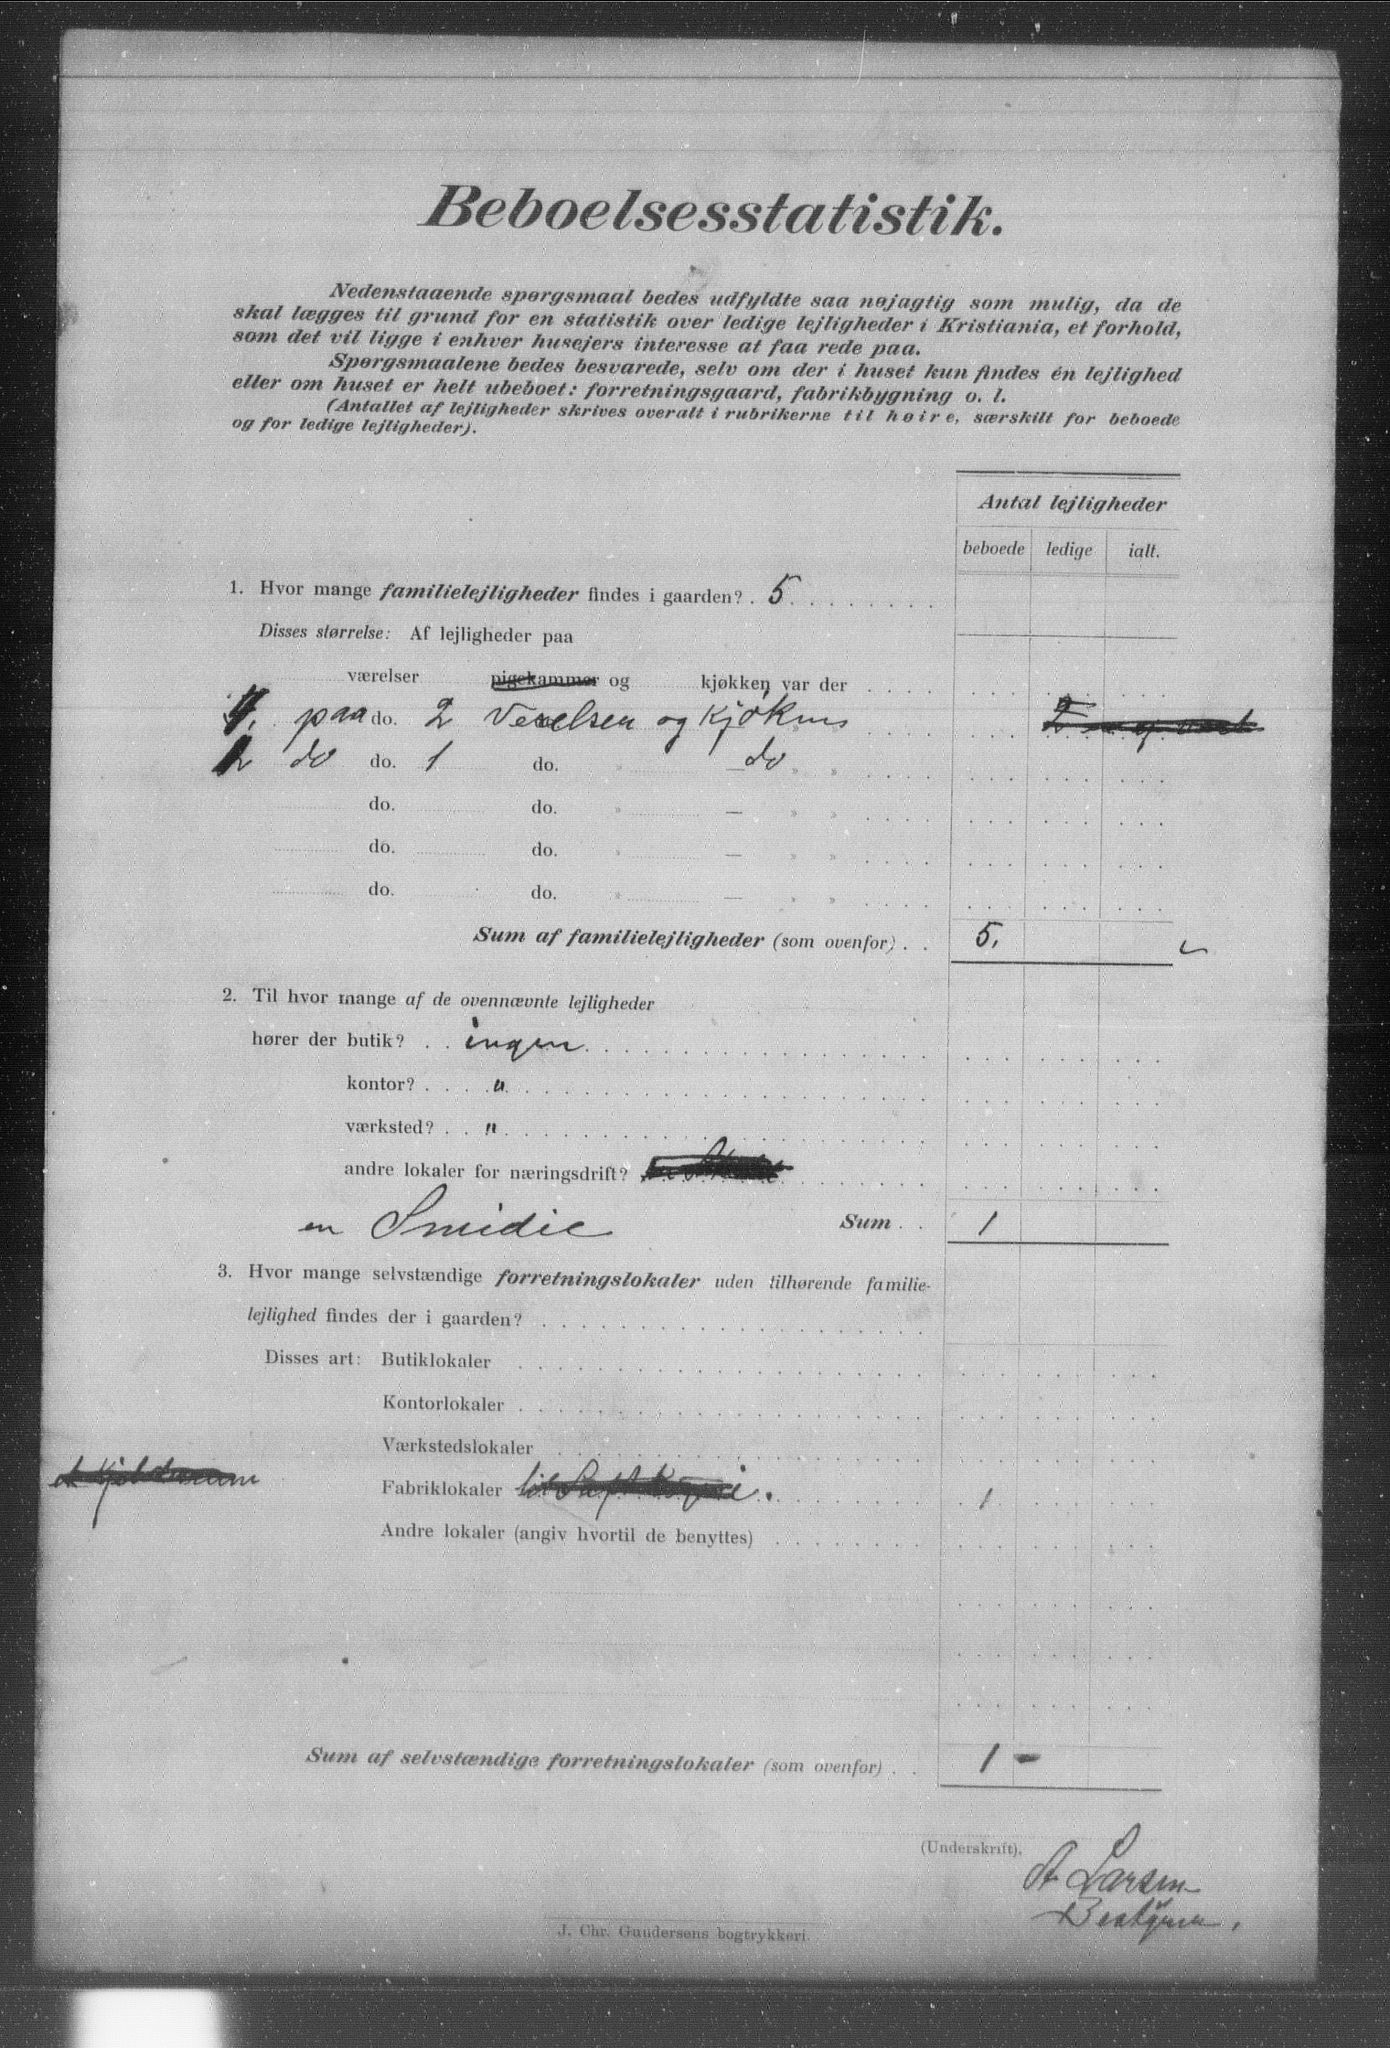 Beboelsesstatistik.
Nedenstaaende spørgsmaal bedes udfyldte saa nøjagtig som mulig, da de
skal lægges til grund for en statistik over ledige lejligheder i Kristiania, et forhold,
som det vil ligge i enhver husejers interesse at faa rede paa.
Spørgsmaalene bedes besvarede, selv om der i huset kun findes én lejlighed
eller om huset er helt ubeboet: forretningsgaard, fabrikbygning o. l.
(Antallet af lejligheder skrives overalt i rubrikerne til høire, særskilt for beboede
og for ledige lejligheder).
Antal lejligheder
beboede ledige ialt.
1. Hvor mange familielejligheder findes i gaarden? . 5
Disses størrelse: Af lejligheder paa
værelser pigekammer og kjøkken var der
4, paa do. 2 Verelser og Kjøkens
do do. 1 do. " — do " "
do. do. " — " "
do. do. " — " "
do. do. " — " "
Sum af familielejligheder (som ovenfor) . . 5,
2. Til hvor mange af de ovennævnte lejligheder
hører der butik? . . ingen
kontor? . . . "
værksted? . . "
andre lokaler for næringsdrift?
en Smidie Sum . . 1
3. Hvor mange selvstændige forretningslokaler uden tilhørende familie-
lejlighed findes der i gaarden?
Disses art: Butiklokaler
Kontorlokaler
Værkstedslokaler
Fabriklokaler til 1
Andre lokaler (angiv hvortil de benyttes)
Sum af selvstændige forretningslokaler (som ovenfor) . . 1 -
(Underskrift).
A Larsen
Bestyrer.
J. Chr. Gundersens bogtrykkeri.